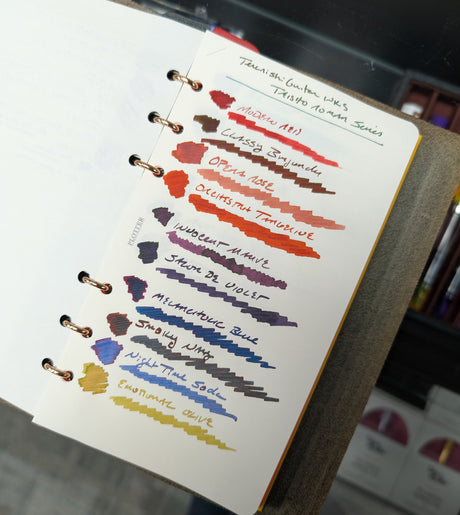 Teranishi: Guitar WKS
Taisho Roman Series
Modern Red
Classy Burgundy
Opera Rose
Orchestra Tangerine
Innocent Mauve
PLOTTER
Salon de Violet
Melancholic Blue
Smoky Navy
Night Time Soda
Emotional Olive